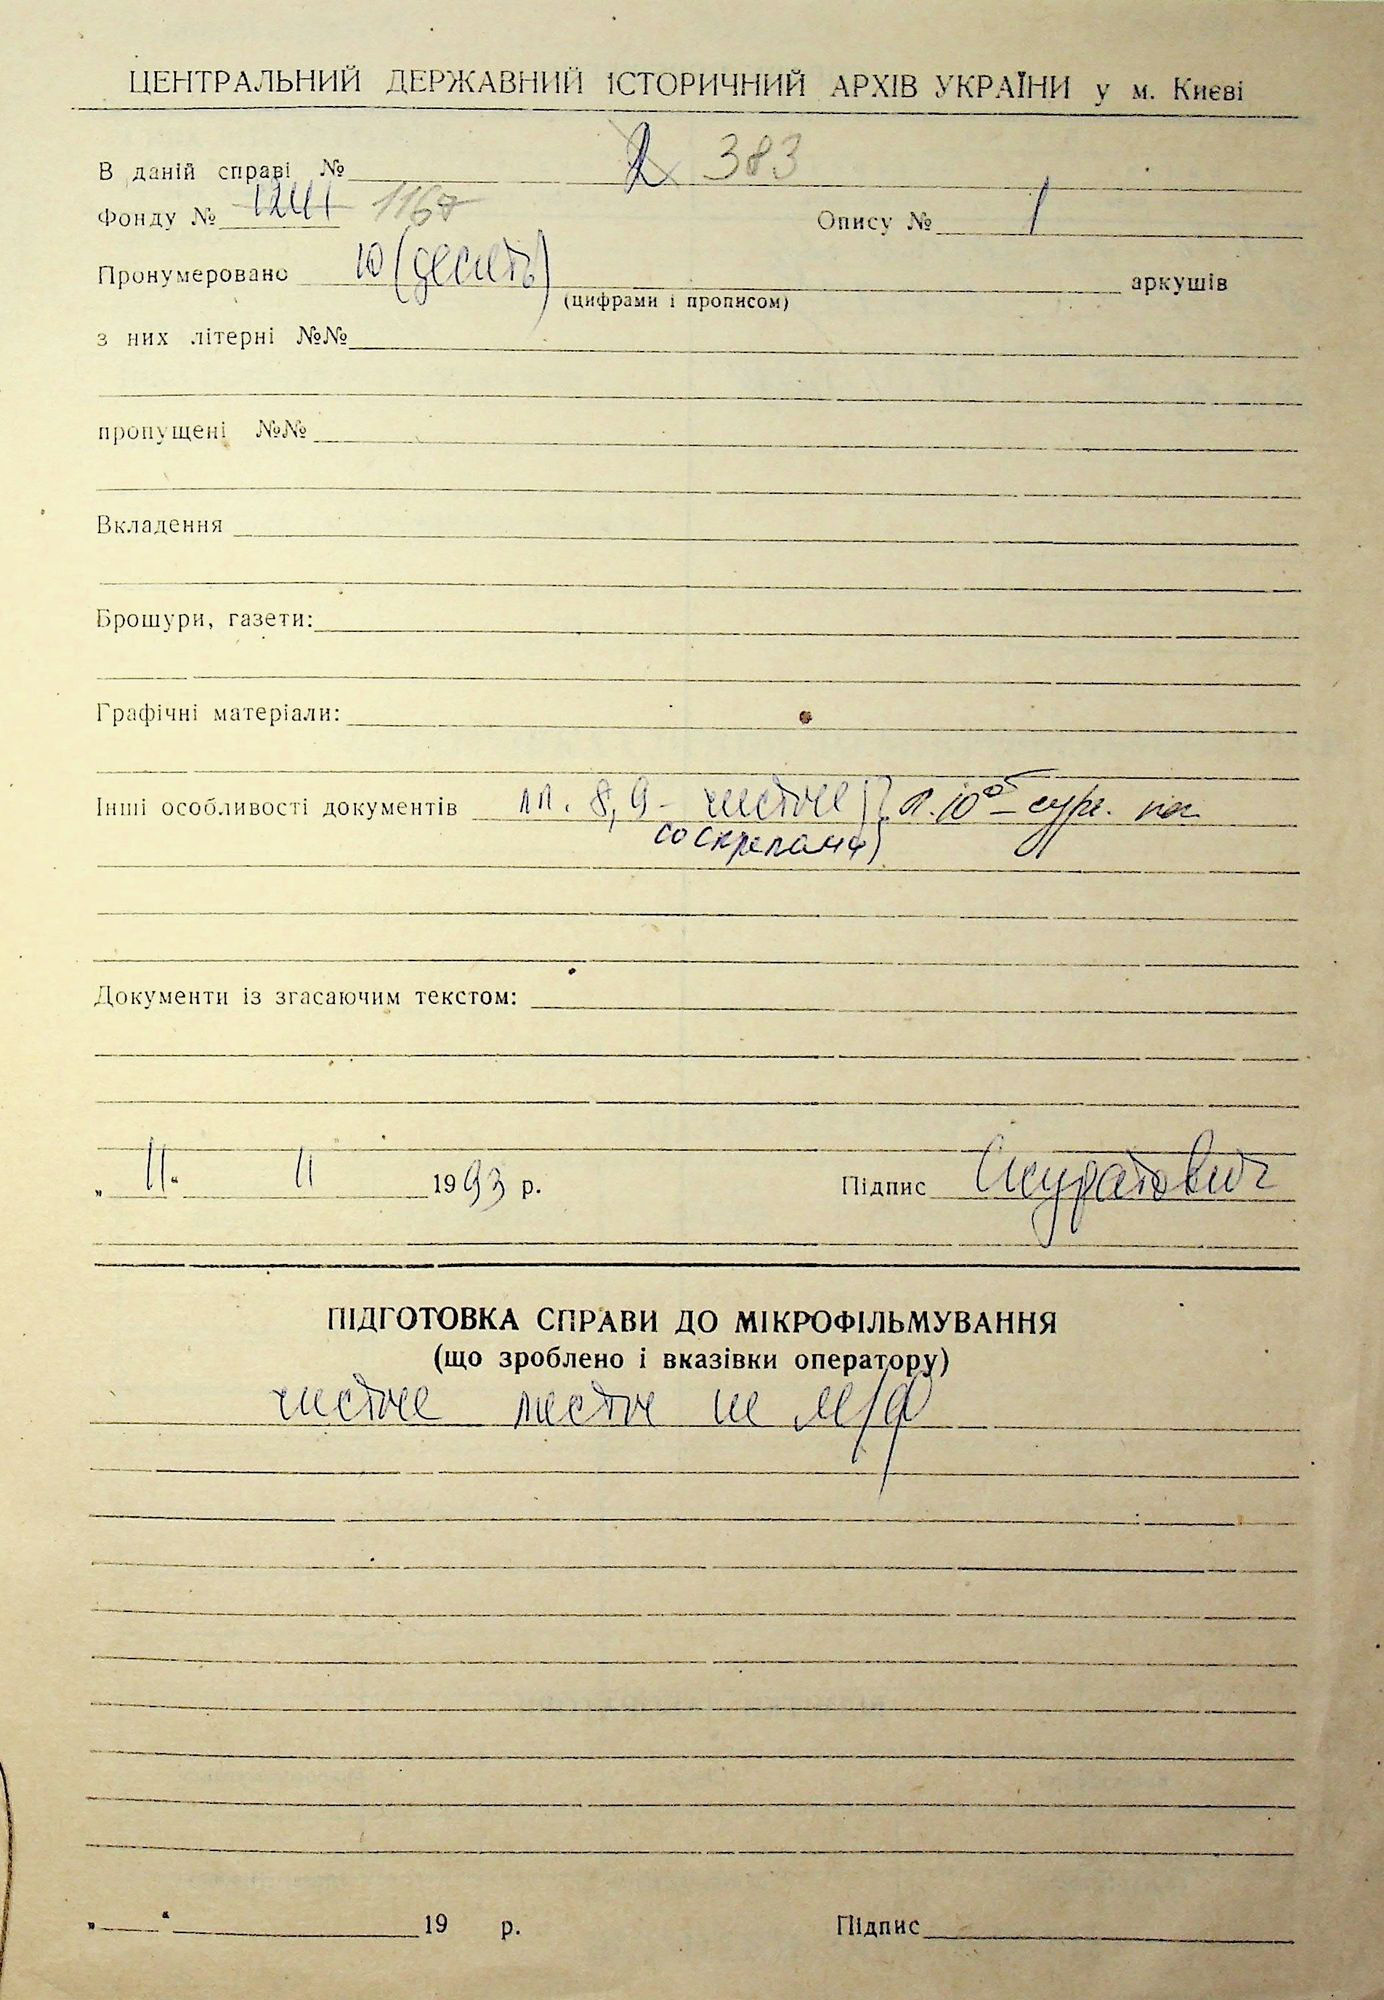 ЦЕНТРАЛЬНИЙ ДЕРЖАВНИЙ ІСТОРИЧНИЙ АРХІВ УКРАЇНИ у м. Києві
В даній справі № 2 383
Фонду № 1241 1167 Опису № 1
Пронумеровано 10 (десять) аркушів
(цифрами і прописом)
з них літерні №№
пропущені №№
Вкладення
Брошури, газети:
Графічні матеріали:
Інші особливості документів лл. 8, 9 - чистые л. 10 об - сург. печ
Документи із згасаючим текстом:
„11“ 11 1993 р. Підпис Скуратович
ПІДГОТОВКА СПРАВИ ДО МІКРОФІЛЬМУВАННЯ
(що зроблено і вказівки оператору)
чистые листы не м/ф
„ “ 19 р. Підпис